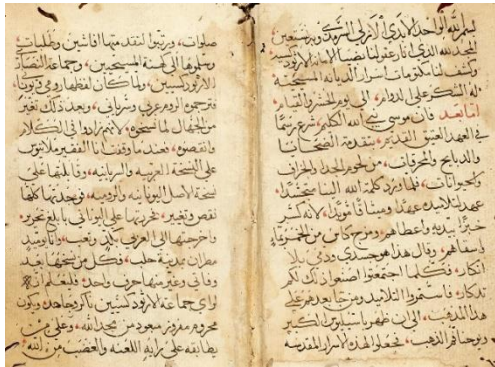 لبسم الله الواحد الابدي الازلي السرمدي وبه نستعين
المجد لله الذي انار عقولنا بضيا الامانة الارثودكسية
وكشف لنا مكتومات اسرار الديانة المسيحية
له الشكر على الدوام، الى يوم الحشر والقيام،
اما بعد فان موسى نبي الله الكليم، شرع رسمًا
في العهد العتيق القديم، بتقدمة الضحيات
والدبايح والمحرقات، من لحوم الجدا والخراف
والحيوانات، فلما ورد كلمة الله الينا متجسدًا،
عهد لتلاميده عهدًا وميثاقًا مؤبدًا، لانه كسر
خبزًا بيديه واعطاهم، ومزج كاس من الخمر وماء
واسقاهم، وقال هدا هو جسدي ودمي بلا
انكار، فكلما اجتمعتوا اصنعوا ذلك لكم
تدكار، فاستمروا التلاميد ومن جا بعدهم على
هدا المدهب، الى ان ظهر باسيليوس الكبير
ويوحنا فم الدهب، فجعلوا لهده الاسرار المقدسة
صلوات، ورتبوا لتقدمتها افاشين وطلبات،
وسلموها الى كهنة المسيحيين، وجماعة النصارى
الارثودكسيين، ولما كان لفظها رومي ويوناني،
فترجموه الروم عربي وسرياني، وبعد ذلك تغير
من الجهال لما نسخوه، لانهم زادوا في الكلام
وانقصوه، فعندما وقفت انا الفقير ملاتيوس
على النسخة العربية والسريانية، وقابلتها على
نسخة الاصل اليونانية والرومية، فوجدتها كلها
نقص وتغيير، فحررتها على اليوناني بابلغ تحرير،
واخرجتها الى العربي بكد وتعب، وانا يوميد
مطران بمدينة حلب، فكل من نسخها بعد
وفاتي وغير منها حرف واحد، فليعلم انه
جماعة الارثودكسيين ناكر وجاحد، ويكون
محروم مفروز مبعود من مجد الله، وعلى من
يطابقه على رايه اللعنة والغضب من الله،